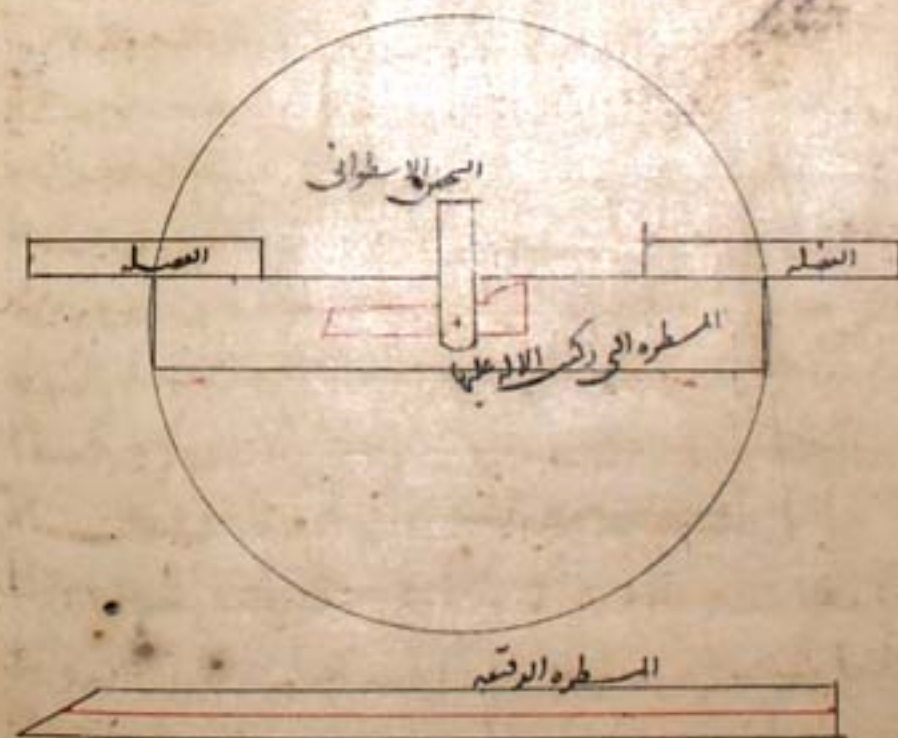 السهم الاسطوانى
الفضله
الفضله
المسطره التى ركب الاله عليها
المسطره الدقيقه